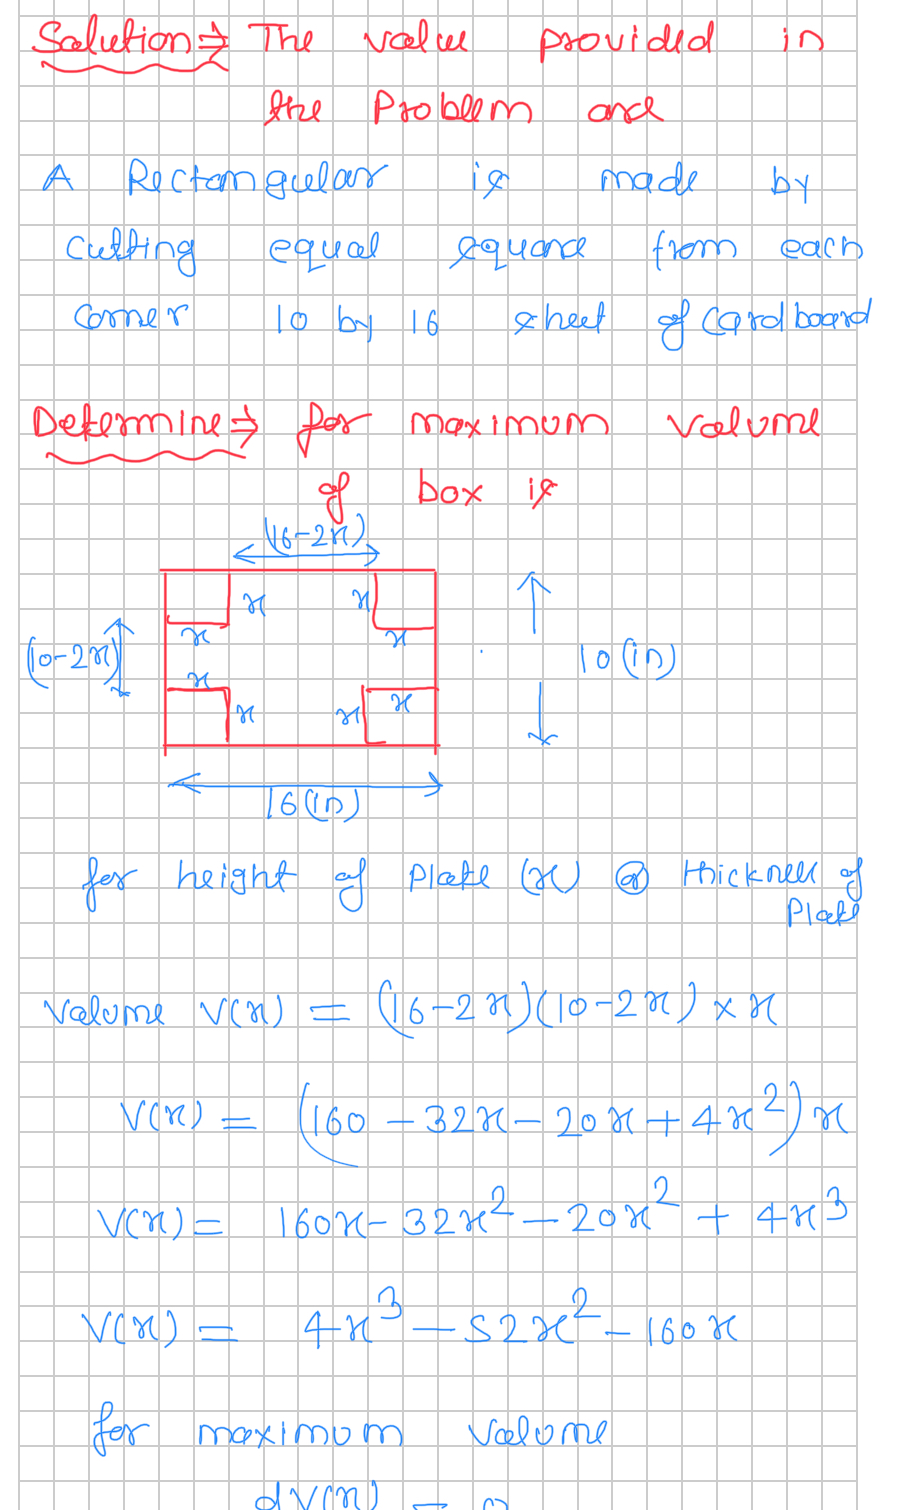 Solution ⇒ The value provided in
the Problem are
A Rectangular is made by
Cutting equal square from each
Corner 10 by 16 sheet of Cardboard
Determine ⇒ for maximum Volume
of box is
(16-2x)
x x
x x
(10-2x)
10(in)
x
x x x
16(in)
for height of Plate (x) @ thickness of
Plate
Volume V(x) = (16-2x)(10-2x) × x
V(x) = (160 - 32x - 20x + 4x²)x
V(x) = 160x - 32x² - 20x² + 4x³
V(x) = 4x³ - 52x² - 160x
for maximum Volume
dV(x) = 0